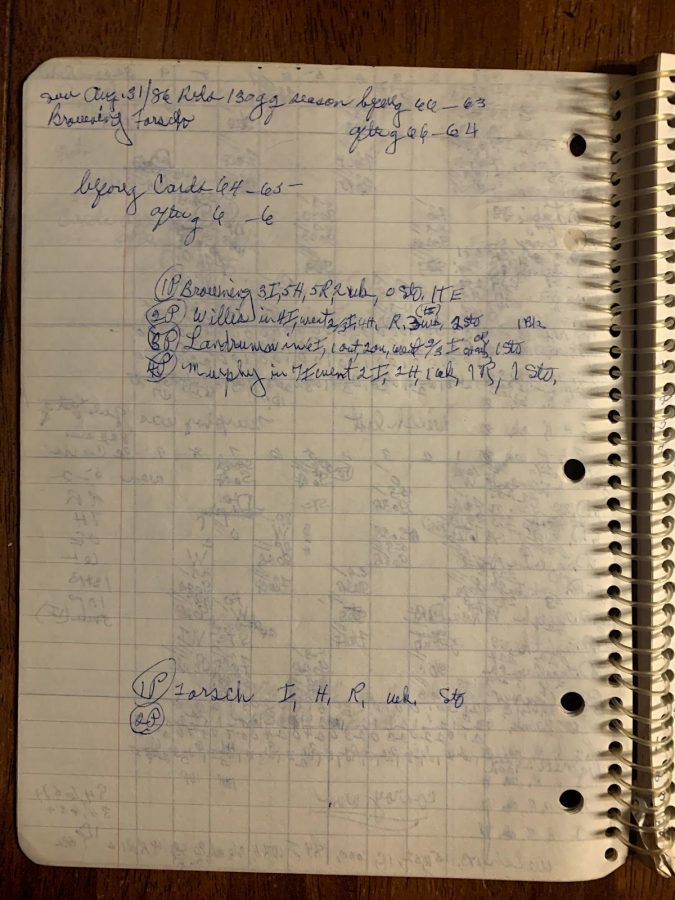 Aug. 31/86 Reds 130 g g season before g 66-63
Browning Forsch
after g 66-64
before g Cards 64-65-
after g 6 -6
1P Browning 3I, 5H, 5R, 2 wk, 0 Sto, 1TE
2P Willis in 4I, went 2/3 I, 4H, R, 3 wk, 2 Sto
3P Landrum in 6I, 1 out, 2 on, went 2/3 I 1 Sto
4P Murphy in 7I went 2I, 2H, 1 wk, 1R, 1 Sto,
1P Forsch I, H, R, wk. Sto
2P